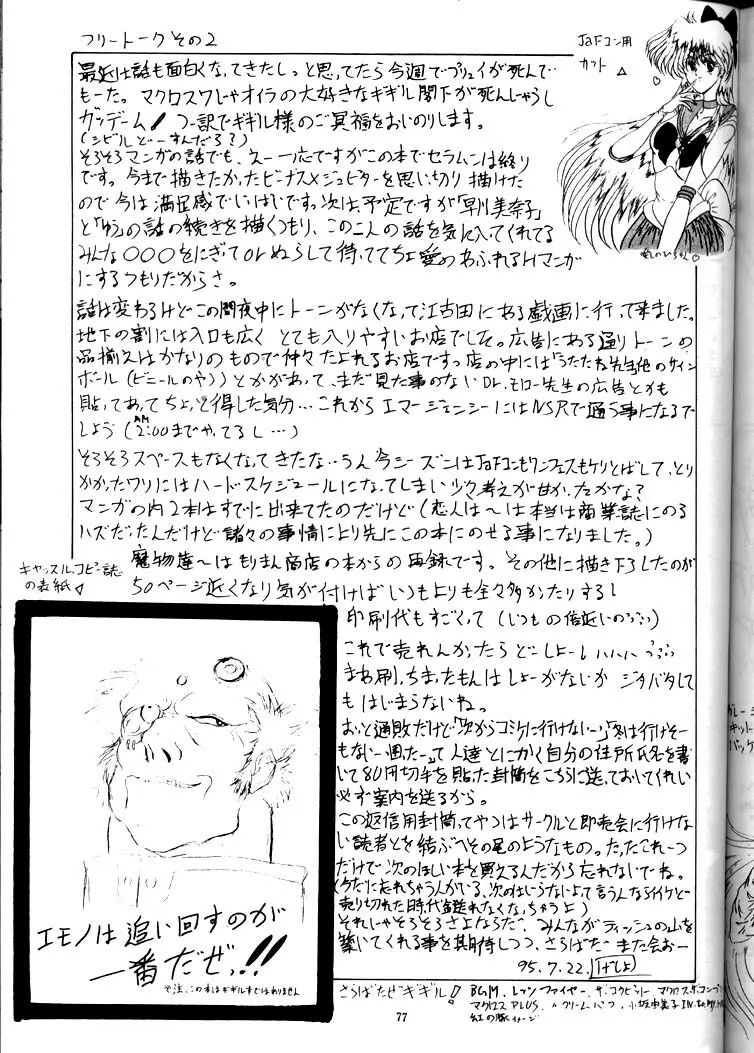 フリートーク その2
JaFコン用
カット △
最近は話も面白くなってきたしっと思ってたら今週でプリュイが死んで
もーた。マクロス7じゃオイラの大好きなギギル閣下が死んじゃうし
ガッデーム! つー訳でギギル様のご冥福をおいのりします。
(シビルどーすんだろ?)
そろそろマンガの話でも、えー一応ですがこの本でセラムンは終り
です。今まで描きたかったビーナス×ジュピターを思い切り描けた
ので今は満足感でいっぱいです。次は、予定ですが「早川美奈子」
と「ゆう」の話の続きを描くつもり、この二人の話を気に入ってくれてる
みんな○○○をにぎってorぬらして待っててちょ愛のあふれるHマンガ
にするつもりだからさ。
話は変わるけどこの間夜中にトーンがなくなって江古田にある戯画に行って来ました。
地下の割には入口も広く とても入りやすいお店でした。広告にある通りトーンの
品揃えはかなりのもので仲々たよれるお店ですっ店の中には「うたたね先生他のサイン
ボール(ビニールのやつ)とかがあって、まだ見た事のないDr.モロー先生の広告とかも
貼ってあってちょっと得した気分…これからエマージェンシーにはNSRで通う事になるで
しょう(AM2:00までやってるし…)
そろそろスペースもなくなってきたな…うん今シーズンはJaFコンもワンフェスもケリとばして、とり
かかったワリにはハードスケジュールになってしまい少々考えが甘かったかな?
マンガの内2本はすでに出来てたのだけど(恋人は〜は本当は商業誌にのる
ハズだったんだけど諸々の事情により先にこの本にのせる事になりました。)
魔物達〜はもりまん商店の本からの再録です。その他に描き下ろしたのが
50ページ近くなり気が付けばいつもよりも全々多かったりするし
キャッスル、コピー誌
の表紙
印刷代もすごくって(いつもの倍近いのっ)
これで売れんかったらどーしよーし
まあ刷っちまったもんはしょーがないかジタバタして
もはじまらないね。
おっと通販だけど「次からコミケに行けない〜」「冬は行けそー
もない〜困った〜」って人達とにかく自分の住所氏名を書
いて80円切手を貼った封筒をこちらに送っておいてくれい
必ず案内を送るから。
この返信用封筒ってやつはサークルと即売会に行けな
い読者とを結ぶへその尾のようなもの。たったこれ一つ
だけで次のほしい本を買えるんだから忘れないでね。
(今だに忘れちゃう人がいる、次のはいらないよって言うんならイイケど
売り切れた時代金送れなくなっちゃうよ)
それじゃそろそろさよならだ、みんながティッシュの山を
築いてくれる事を期待しつつ、さらばだ また会おー
95.7.22.
エモノは追い回すのが
一番だぜっ!!
※注、この本はギギル本ではありません
さらばだぜギギル!
BGM. レッツファイヤー、ザ・コクピット、マクロスザ・コンプ
マクロスPLUS、〃クリームパフ、小坂由美子IN
紅の豚イメージ
77
ガレージ
キット
パッケ